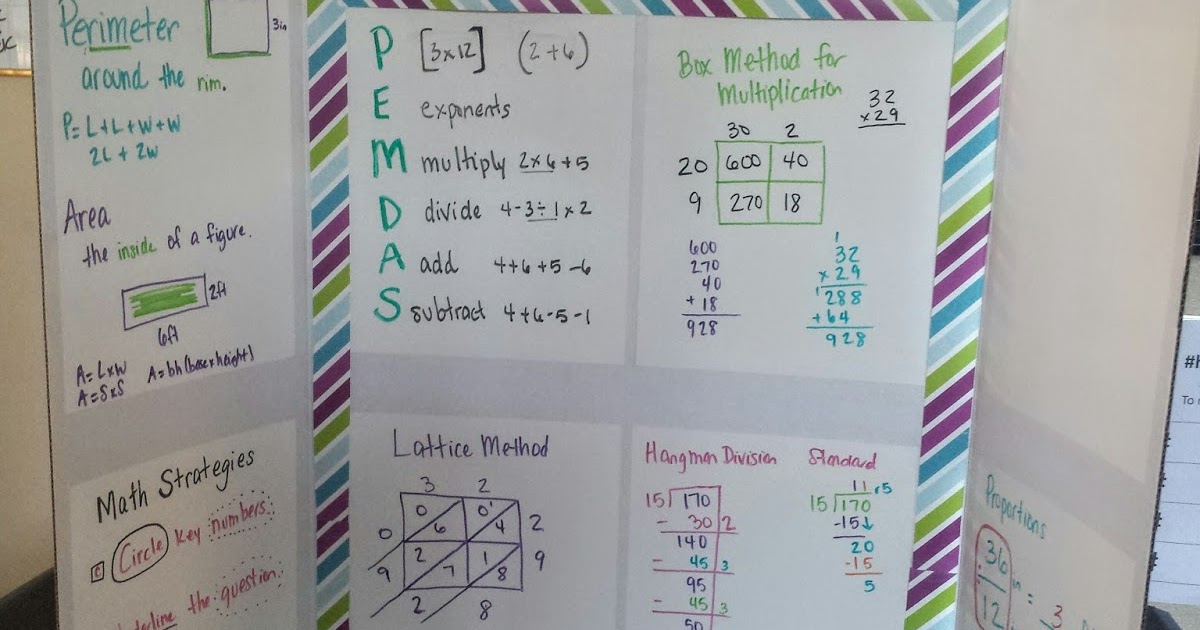 Perimeter
3in
around the rim.
P=L+L+W+W
2L + 2W
Area
the inside of a figure.
2ft
6ft
A=LxW A=bh(base x height)
A=SxS
Math Strategies
C Circle key numbers.
the question.
P [3x12] (2+6)
E exponents
M multiply 2x6+5
D divide 4-3÷1x2
A add 4+6+5-6
S subtract 4+6-5-1
Box Method for
Multiplication
32
x29
30 2
20 600 40
9 270 18
600
270
40
+ 18
928
1
32
x29
1288
+64
928
Lattice Method
3 2
0 0 6 0 1 4 2
9 2 7 1 8 9
2 8
Hangman Division
15 170
- 30 2
140
- 45 3
95
- 45 3
50
Standard
11 r5
15 170
-15↓
20
-15
5
Proportions
36
12
in = 3
#
To